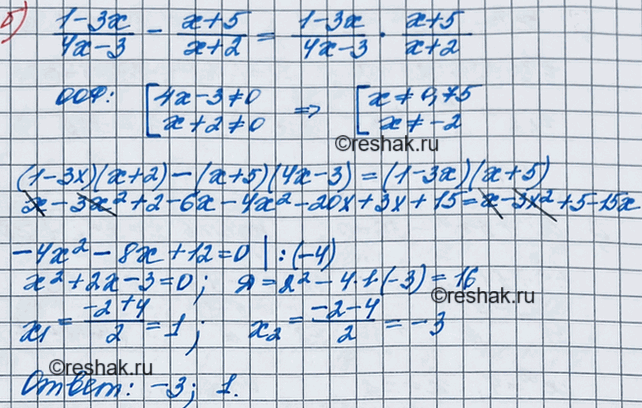 б) (1-3x)/(4x-3) - (x+5)/(x+2) = (1-3x)/(4x-3) · (x+5)/(x+2)
ООФ: [4x-3≠0 => [x≠0,75
x+2≠0 x≠-2
©reshak.ru
(1-3x)(x+2)-(x+5)(4x-3)=(1-3x)(x+5)
x-3x²+2-6x-4x²-20x+3x+15=x-3x²+5-15x
-4x²-8x+12=0 |:(-4)
x²+2x-3=0; Д=2²-4·1·(-3)=16
©reshak.ru
x₁=(-2+4)/2=1; x₂=(-2-4)/2=-3
©reshak.ru
Ответ: -3; 1.